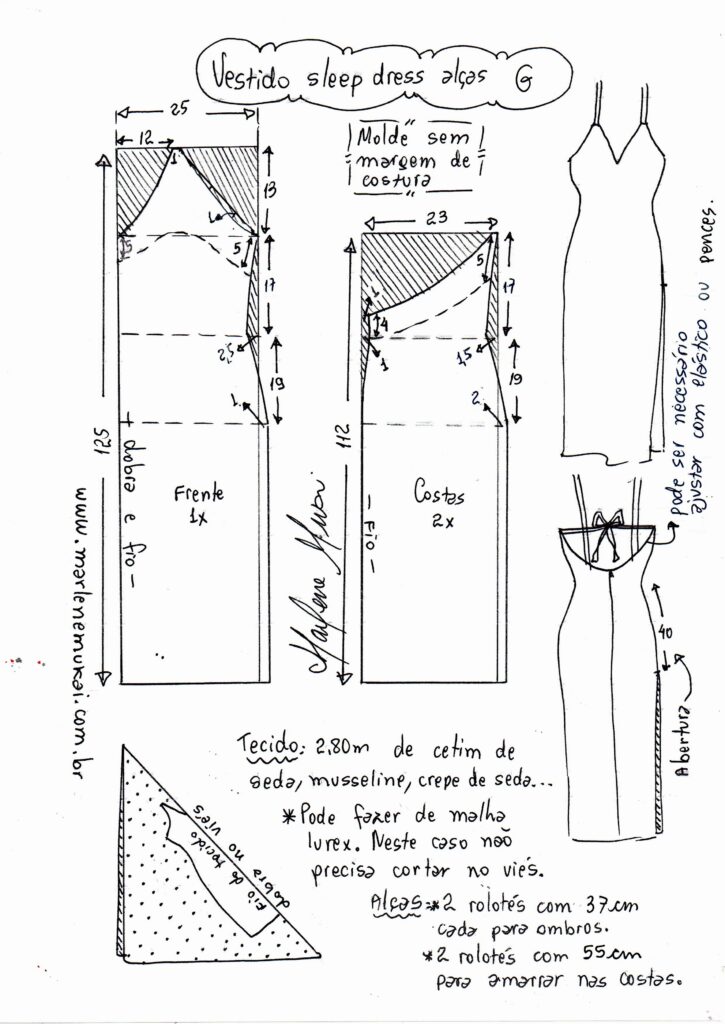 Vestido sleep dress alças G
25
12
1
13
1
5
5
17
2,5
19
1
125
+ dobra e fio —
Frente
1x
www.marlenemukai.com.br
Molde sem
margem de
costura
23
5
17
1
4
1
1,5
19
2
112
— Fio —
Costas
2x
Marlene Mukai
pode ser necessário
ajustar com elástico ou pences.
40
Abertura
Tecido: 2,80m de cetim de
seda, musseline, crepe de seda...
*Pode fazer de malha
lurex. Neste caso não
precisa cortar no viés.
Alças:*2 rolotés com 37cm
cada para ombros.
*2 rolotés com 55cm
para amarrar nas costas.
dobra no viés
fio do tecido